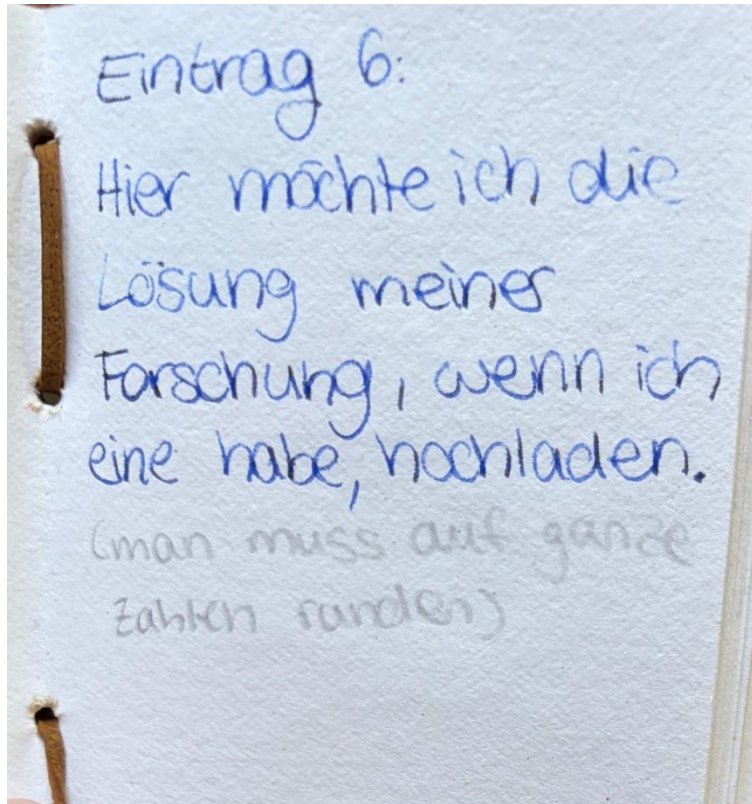 Eintrag 6:
Hier möchte ich die
Lösung meiner
Forschung, wenn ich
eine habe, hochladen.
(man muss auf ganze
Zahlen runden)